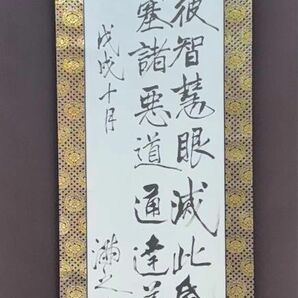 彼智慧眼滅此昏
塞諸悪道通達善
戊戌十月
満之